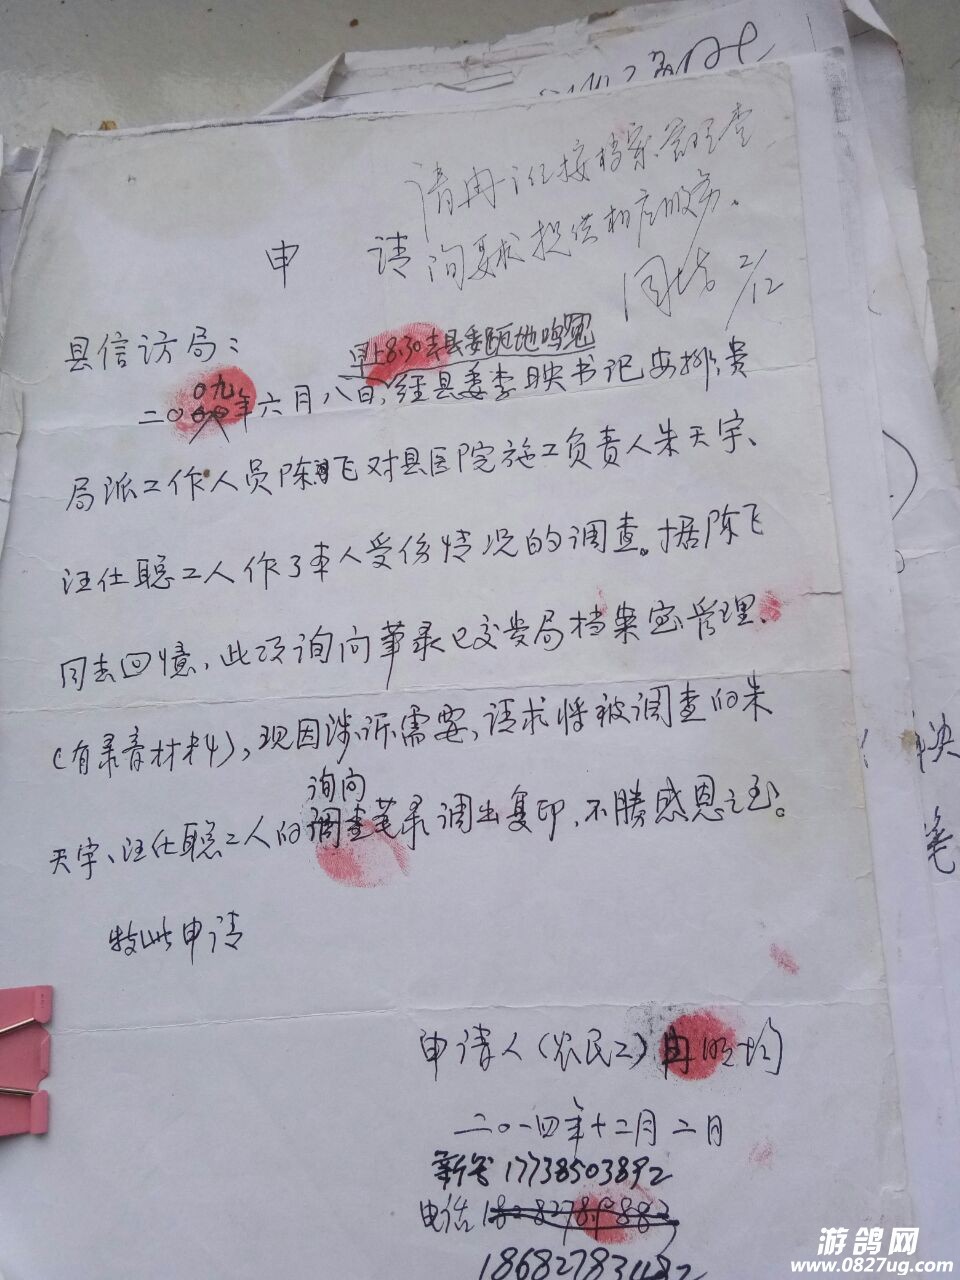 请冉 按档案管理查
申 请
询要求提供相应服务。
2/12
县信访局：
早上8.30去县委跪地鸣冤
二00九年六月八日，经县委李映书记安排，贵
局派工作人员陈飞对县医院施工负责人朱天宇、
汪仕聪工人作了本人受伤情况的调查。据陈飞
同志回憶，此项询问笔录已交贵局档案室管理、
（有录音材料），现因涉诉需要，请求将被调查的朱
询问
天宇、汪仕聪工人的调查笔录调出复印，不勝感恩之至。
特此申请
申请人（农民工）冉 均
二0一四年十二月二日
新号 17738503892
电话
决
笔
游鸽网
www.0827ug.com